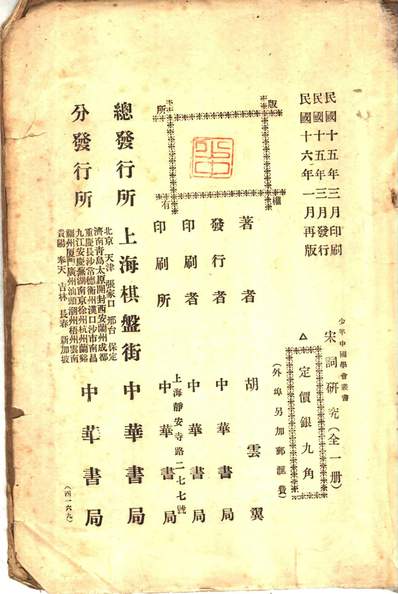 民國十五年三月印刷
民國十五年三月發行
民國十六年一月再版
少年中國學會叢書
宋詞研究(全一册)
△定價銀九角
(外埠另加郵滙費)
版權所有
著者 胡雲翼
發行者 中華書局
印刷者 中華書局
印刷所 上海靜安寺路二七七號 中華書局
總發行所 上海棋盤街 中華書局
分發行所
北京 天津 張家口 邢台 保定
濟南青島太原開封西安蘭州成都
重慶長沙常德衡州漢口沙市南昌
九江安慶蕪湖南京徐州杭州蘭谿
福州厦門廣州汕頭潮州梧州雲南
貴陽 奉天 吉林 長春 新加坡
中華書局
(四一六九)